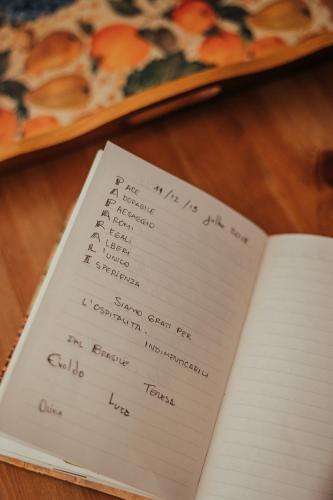 11/12/13 julho 2018
PACE
ADORABILE
PAESAGGIO
AROMI
REGALI
ALBERI
L'UNICO
ISPERIENZA
SIAMO GRATI PER
L'OSPITALITÀ.
INDIMENTICABILI
DAL BRASILE
Evaldo
TERESA
LUIZA